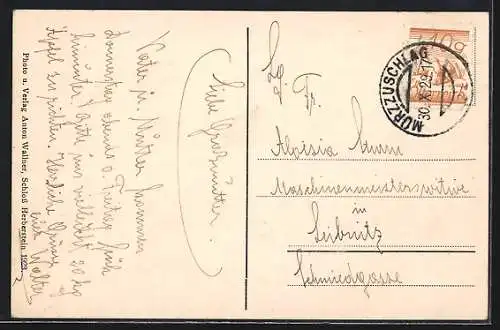 Photo u. Verlag Anton Wallner, Schloß Herberstein 1923.
Liebe Großmutter.
Vater u. Mutter kommen
Donnerstag abends o. Freitag früh
hinunter. Bitte uns vielleicht 20 kg
Äpfel zu richten. Herzliche Grüße
euer Walter
10g
MÜRZZUSCHLAG
Fr.
Aloisia Sturm
Maschinenmeisterswitwe
in
Leibnitz
Schmiedgasse